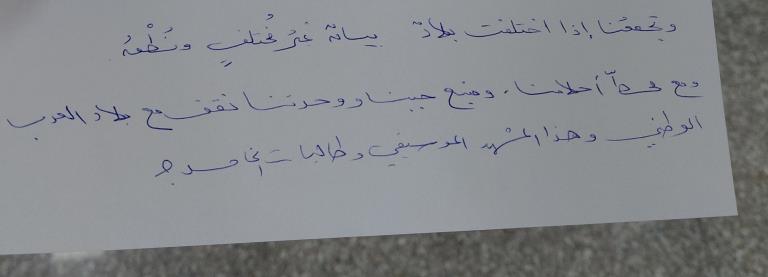 وتجمعُنا إذا اختلفت بلادٌ بيانٌ غيرُ مُختلفٍ ونُطْقُ
ومع محطّ أحلامنا، ومنبع حبنا ووحدتنا نقف مع بلاد العرب
الوطني وهذا المشهد الموسيقي وطالبات الخامس ج